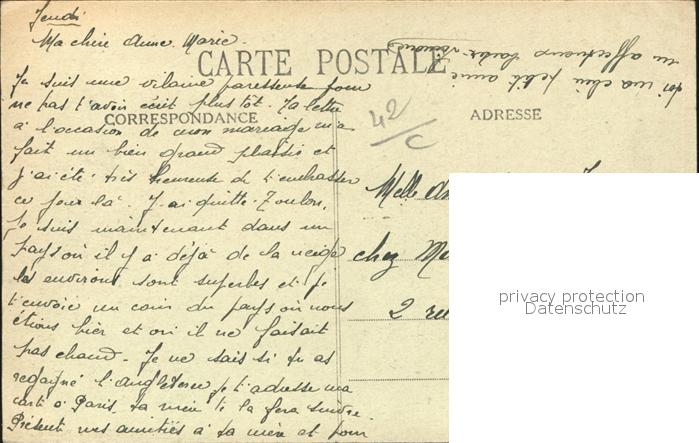 Jeudi
Ma chère Anne-Marie.
CARTE POSTALE
Je suis une vilaine paresseuse pour
ne pas t'avoir écrit plus tôt. Ta lettre
CORRESPONDANCE
à l'occasion de mon mariage m'a
fait un bien grand plaisir et
j'ai été très heureuse de t'embrasser
ce jour là. J'ai quitté Toulon,
Je suis maintenant dans un
pays où il y a déjà de la neige
les environs sont superbes et je
t'envoie un coin du pays où nous
étions hier et où il ne faisait
pas chaud. Je ne sais si tu as
regagné l'Angleterre je t'adresse ma
carte à Paris, ta mère te la fera suivre.
Présente mes amitiés à ta mère et pour
toi ma chère petite amie
un affectueux
42/C
ADRESSE
Melle
chez
2 rue
privacy protection
Datenschutz